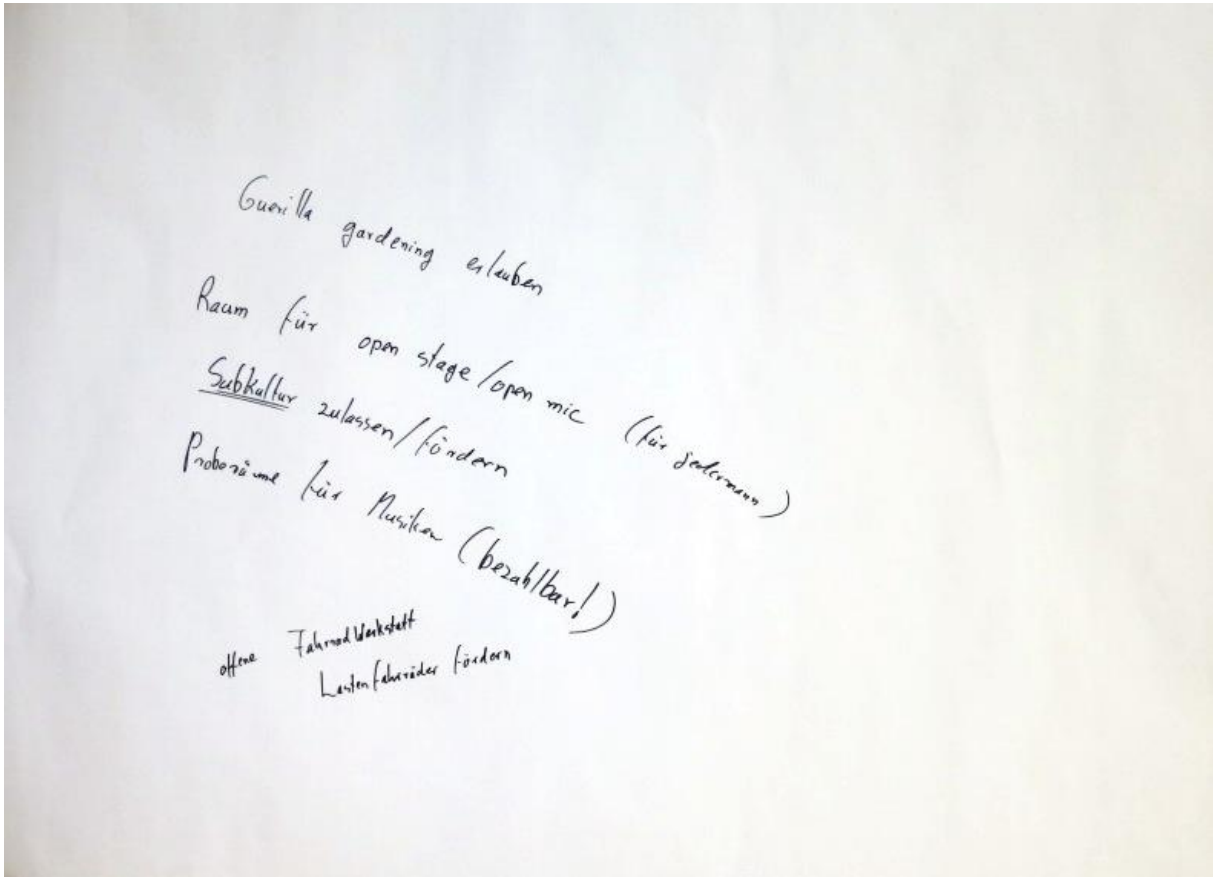 Guerilla gardening erlauben
Raum für open stage/open mic (für jedermann)
Subkultur zulassen/fördern
Proberäume für Musiker (bezahlbar!)
offene Fahrrad Werkstatt
Lastenfahrräder fördern